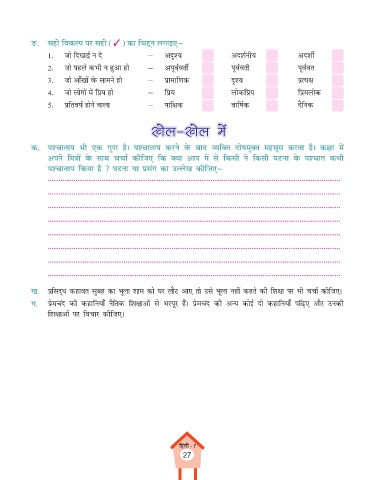 ङ. सही विकल्प पर सही ( ✓ ) का चिह्न लगाइए–
1. जो दिखाई न दे – अदृश्य अदर्शनीय अदर्शी
2. जो पहले कभी न हुआ हो – अपूर्ववर्ती पूर्ववर्ती पूर्ववत
3. जो आँखों के सामने हो – प्रामाणिक दृश्य प्रत्यक्ष
4. जो लोगों में प्रिय हो – प्रिय लोकप्रिय प्रियलोक
5. प्रतिवर्ष होने वाला – पाक्षिक वार्षिक दैनिक
खेल-खेल में
क. पश्चाताप भी एक गुण है। पश्चाताप करने के बाद व्यक्ति दोषमुक्त महसूस करता है। कक्षा में
अपने मित्रों के साथ चर्चा कीजिए कि क्या आप में से किसी ने किसी घटना के पश्चात कभी
पश्चाताप किया है ? घटना या प्रसंग का उल्लेख कीजिए–
ख. प्रसिद्ध कहावत सुबह का भूला शाम को घर लौट आए तो उसे भूला नहीं कहते की शिक्षा पर भी चर्चा कीजिए।
ग. प्रेमचंद की कहानियाँ नैतिक शिक्षाओं से भरपूर हैं। प्रेमचंद की अन्य कोई दो कहानियाँ पढ़िए और उनकी
शिक्षाओं पर विचार कीजिए।
हिंदी-7
27